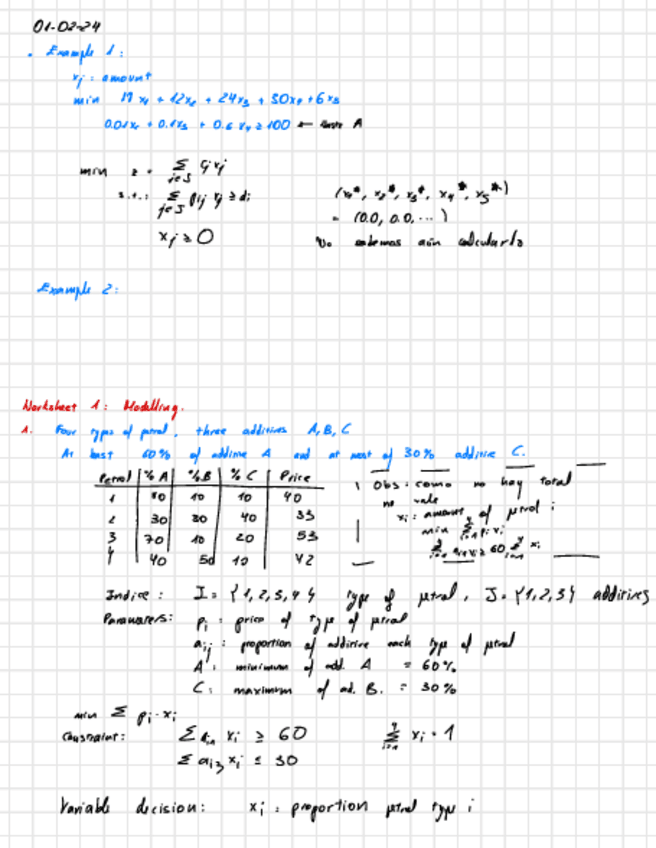 01-02-24
• Example 1:
xj : amount
min 17 x1 + 12x2 + 24x3 + 30x4 + 6x5
0.01x2 + 0.1x3 + 0.6 x4 ≥ 100 ← A
min z = Σ j∈J cj xj
s.t.: Σ j∈J pij xj ≥ di
xj ≥ 0
(x1*, x2*, x3*, x4*, x5*)
= (0.0, 0.0, ...)
No aún calcularlo
Example 2:
Worksheet 1: Modelling.
1. Four types of petrol, three additives A, B, C
At least 60% of additive A and at most of 30% additive C.
Petrol | % A | % B | % C | Price
1 | 80 | 10 | 10 | 40
2 | 30 | 30 | 40 | 35
3 | 70 | 10 | 20 | 53
4 | 40 | 50 | 10 | 42
Obs: como no hay total
no vale
xi : amount of petrol i
min Σ pi xi
Indice: I = {1, 2, 3, 4} type of petrol, J = {1,2,3} additives
Parameters: pi : price of type of petrol
aij : proportion of additive each type of petrol
A : minimum of add. A = 60%
C : maximum of ad. B. = 30%
min Σ pi · xi
Constraint: Σ ai1 xi ≥ 60
Σ xi = 1
Σ ai3 xi ≤ 30
Variable decision: xi : proportion petrol type i